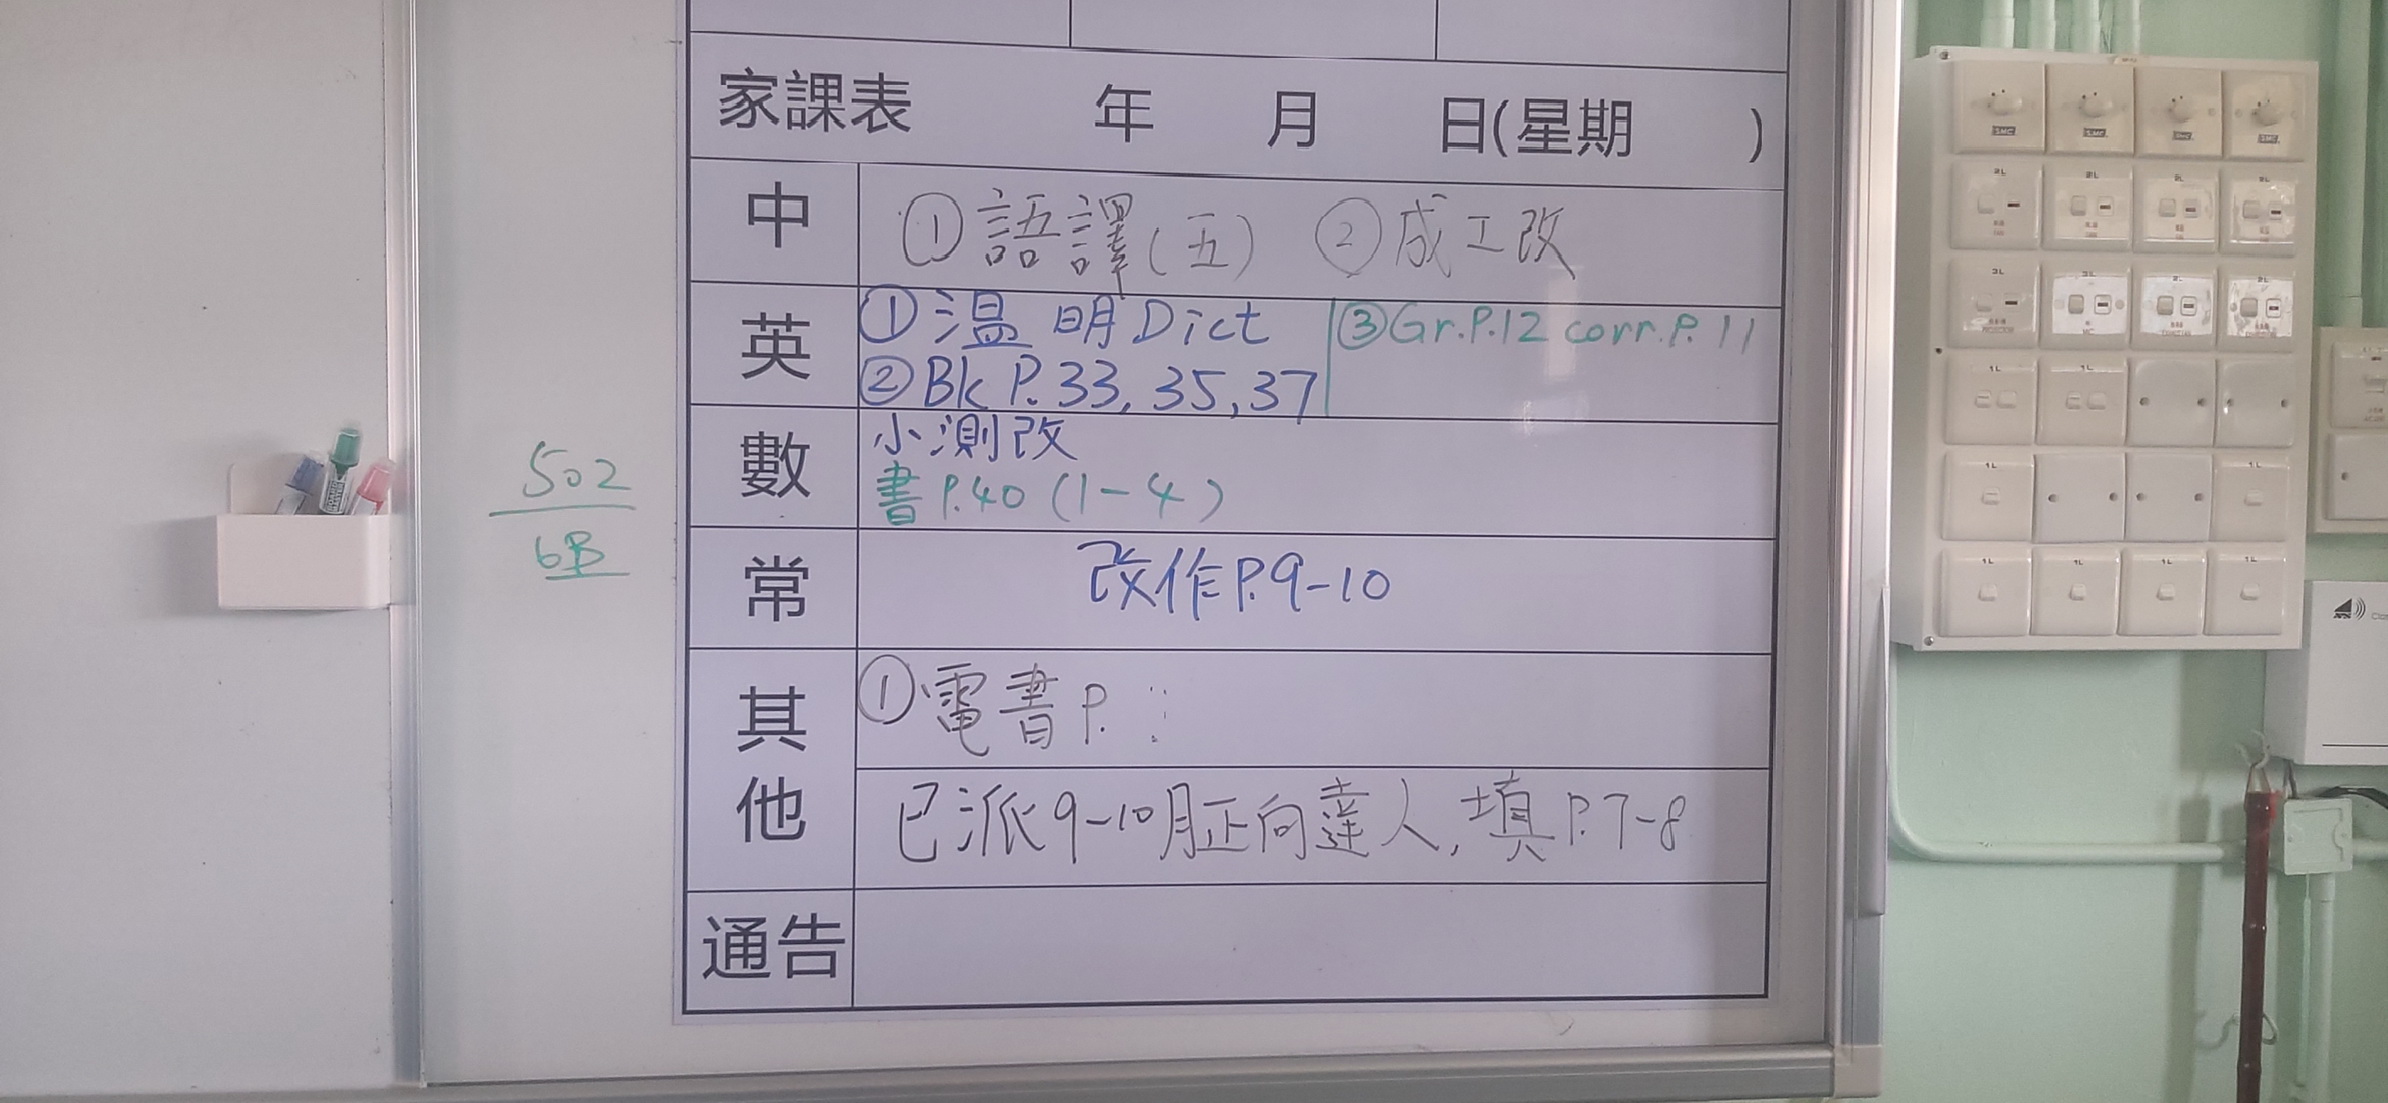 家課表 年 月 日(星期 )
中 ①語譯(五) ②成工改
英 ①溫 明Dict ③Gr.P.12 corr.P.11
②Bk P.33, 35, 37
數 小測改
書P.40 (1-4)
502
6B
常 改作P.9-10
其他 ①電書P.
已派9-10月正向達人, 填P.7-8
通告